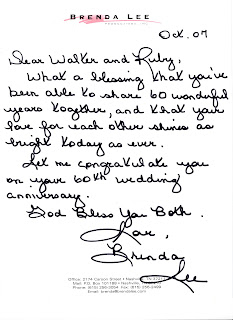 BRENDA LEE
Oct. 07
Dear Walter and Ruby,
What a blessing that you've
been able to share 60 wonderful
years together, and that your
love for each other shines as
bright today as ever.
Let me congratulate you
on your 60th wedding
anniversary.
God Bless You Both.
Love,
Brenda
Lee
Office: 2174 Carson Street • Nashville,
Mail: P.O. Box 101188 • Nashville,
Phone: (615)
Email: